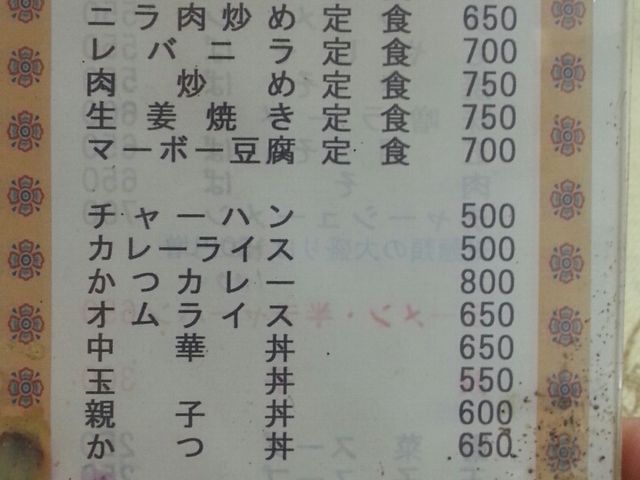 ニラ肉炒め定食 650
レバニラ定食 700
肉炒め定食 750
生姜焼き定食 750
マーボー豆腐定食 700
チャーハン 500
カレーライス 500
かつカレー 800
オムライス 650
中華丼 650
玉丼 550
親子丼 600
かつ丼 650